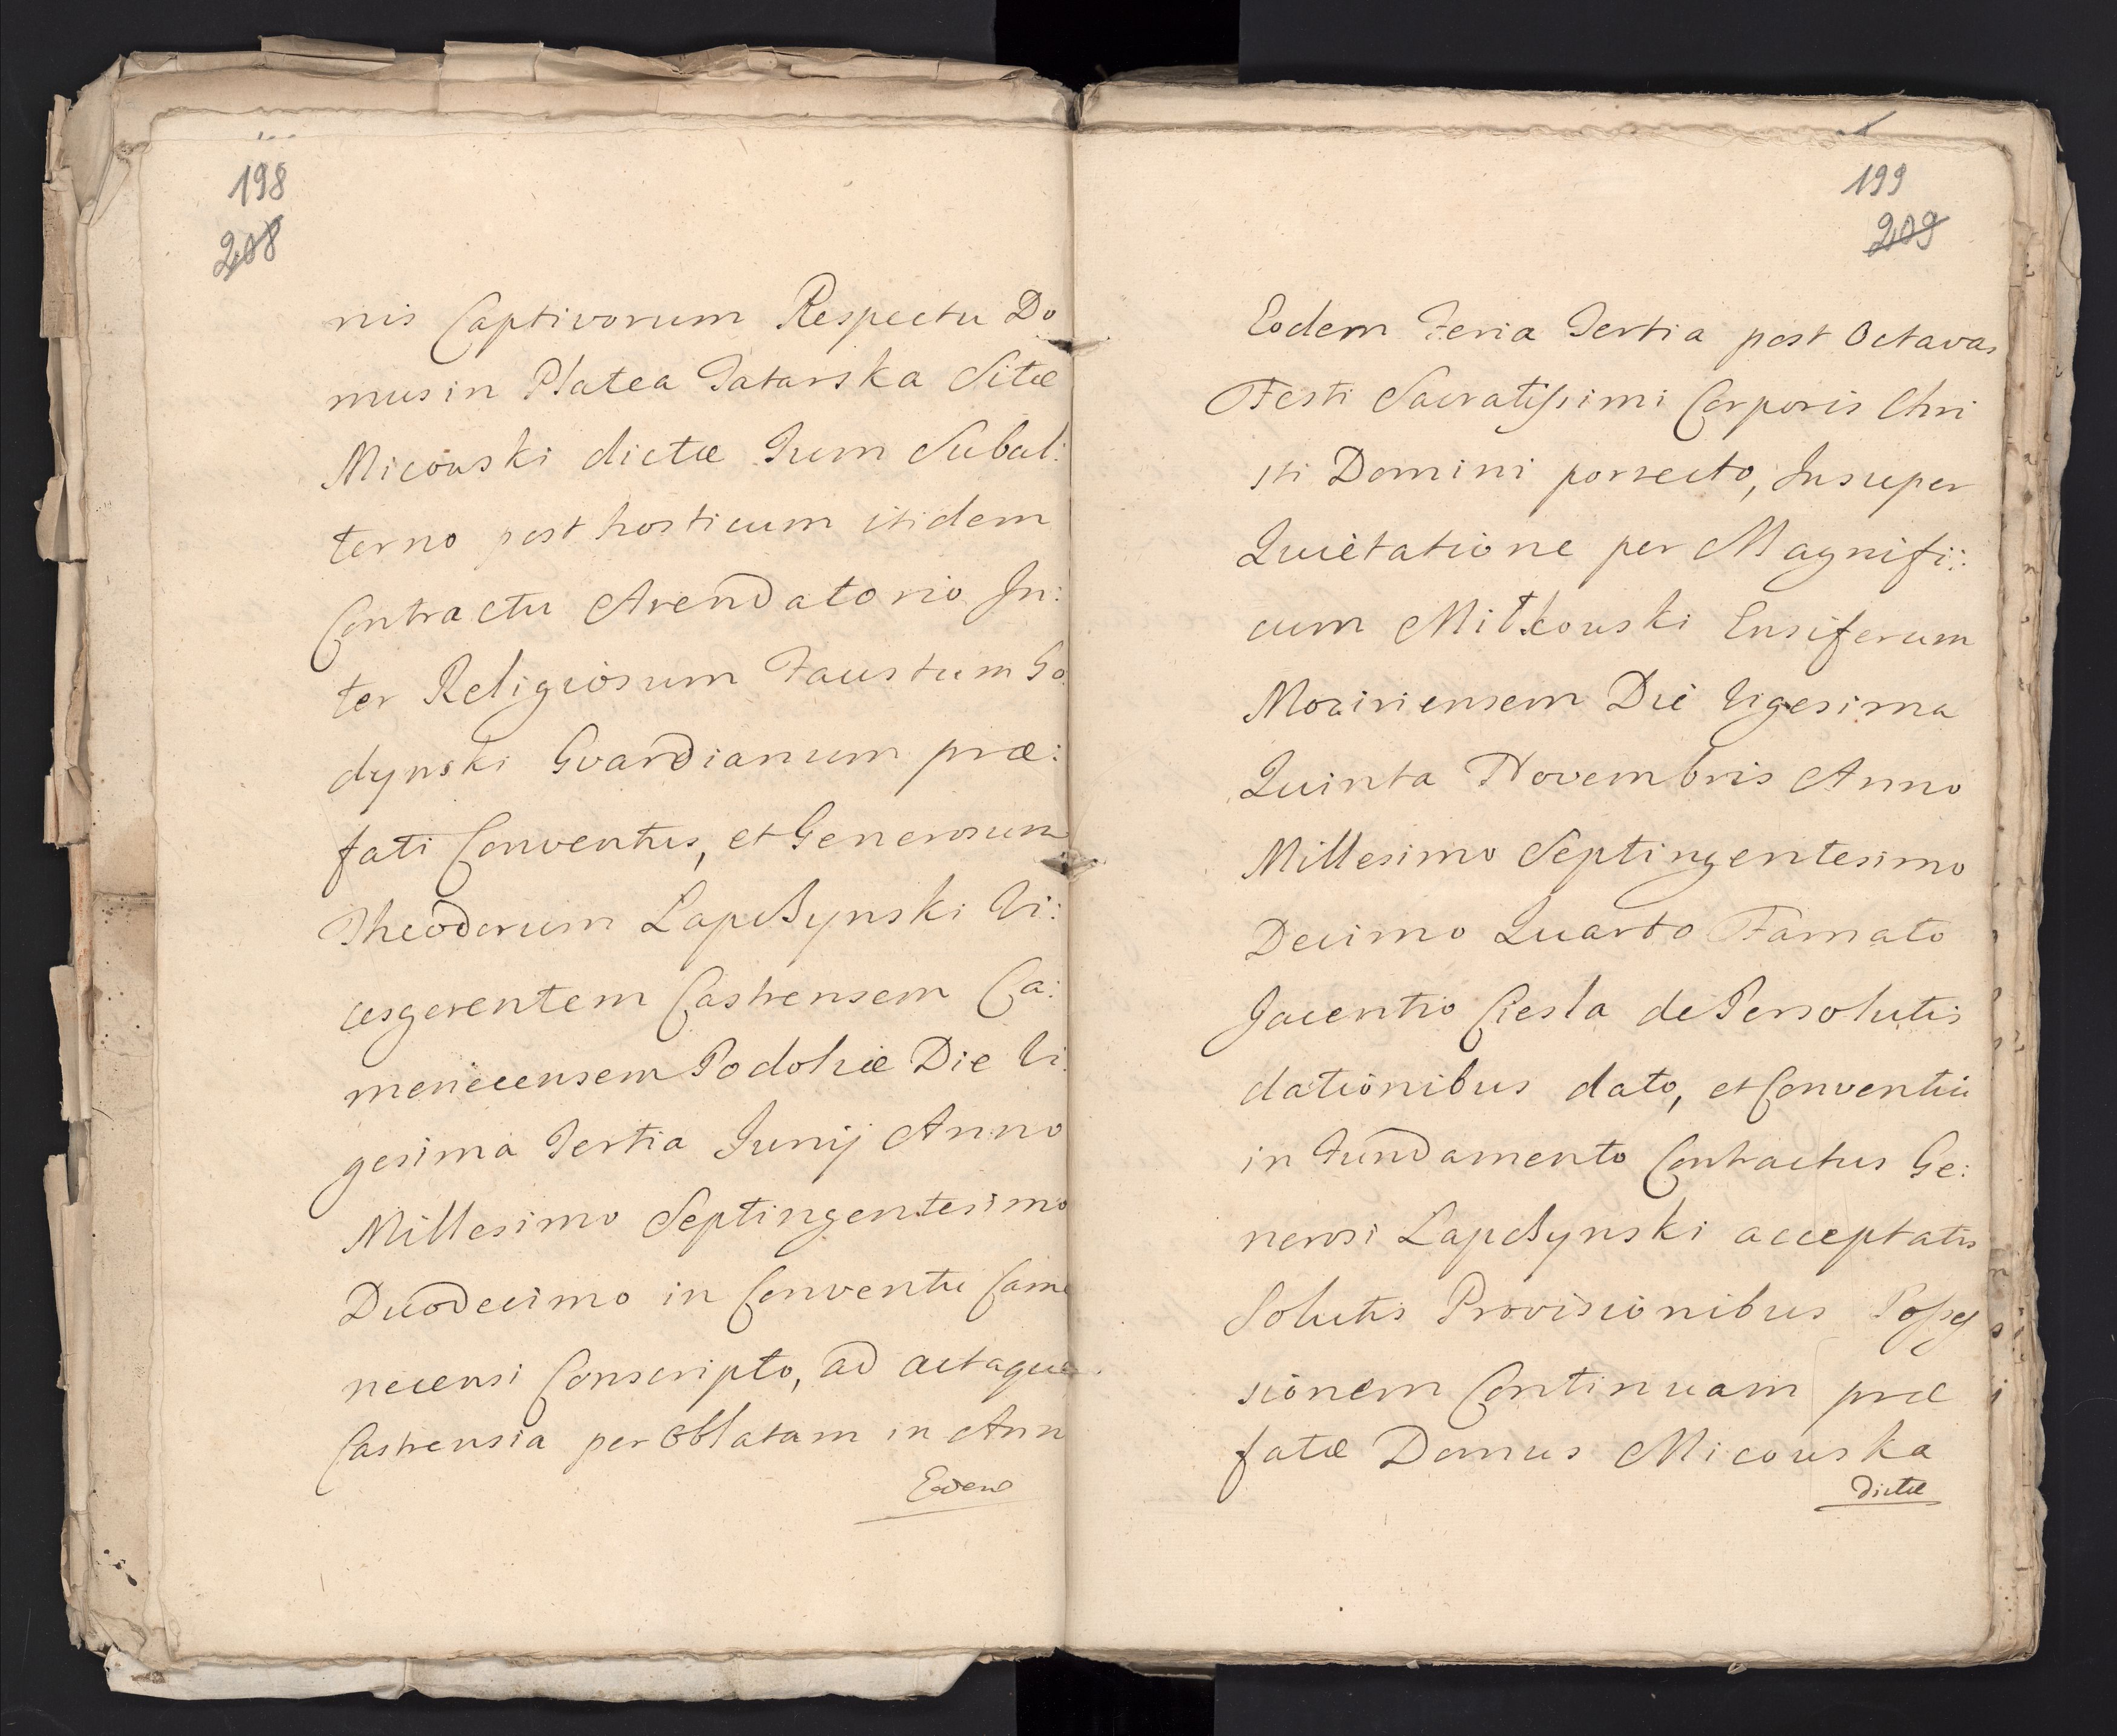 198
208
nis Captivorum Respectu Do
mus in Platea Tatarska Sitæ
Micowski dictæ Tum Subal:
terno post hosticum itidem
Contractu Arendatorio In:
ter Religiosum Faustum Go
dynski Gvardianum præ:
fati Conventus, et Generosum
Theodorum Lapczynski Vi:
cesgerentem Castrensem Ca:
menecensem Podoliæ Die Vi
gesima Tertia Junij Anno
Millesimo Septingentesimo
Duodecimo in Conventu Came
necensi Conscripto, ad actaque
Castrensia per Oblatam in Ann
Eodem
199
209
Eodem Feria Tertia post Octavas
Festi Sacratissimi Corporis Chri
sti Domini porrecto, Insuper
Quietatione per Magnifi:
cum Mitkowski Ensiferum
Moziriensem Die Vigesima
Quinta Novembris Anno
Millesimo Septingentesimo
Decimo Quarto Famato
Jacentio Ciesla de Persolutis
dationibus dato, et Conventui
in Fundamento Contractus Ge:
nerosi Lapczynski acceptatis
Solutis Provisionibus Posses
sionem Continuam præ
fatæ Domus Micowska
dictæ